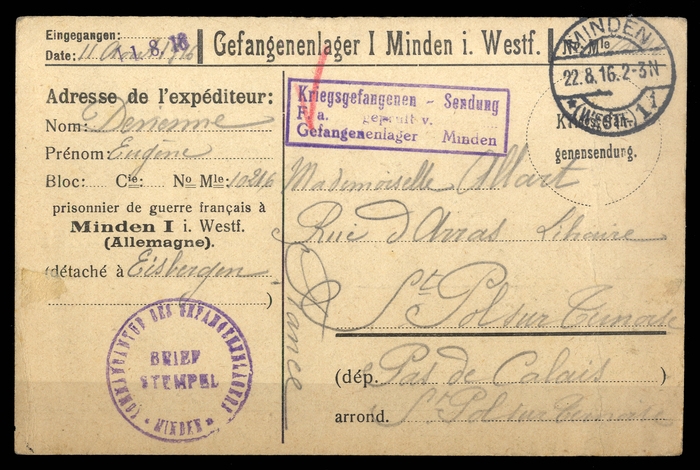 Eingegangen:
Date: 11 Août 1916
11. 8. 16
Gefangenenlager I Minden i. Westf.
No. Mle
MINDEN
22.8.16.2-3N
* (WESTF.) 1 i
Adresse de l'expéditeur:
Nom: Derienne
Prénom: Eugène
Bloc: Cie: No Mle: 10216
prisonnier de guerre français à
Minden I i. Westf.
(Allemagne).
(détaché à Eisbergen
)
Kriegsgefangenen - Sendung
F. a. geprüft v.
Gefangenenlager Minden
Kriegsgefan-
genensendung.
Mademoiselle Allart
Rue d'Arras Libraire
St Pol sur Ternoise
France
(dép. Pas de Calais)
arrond. St Pol sur Ternoise
KOMMANDANTUR DES GEFANGENENLAGERS
BRIEF
STEMPEL
* MINDEN *